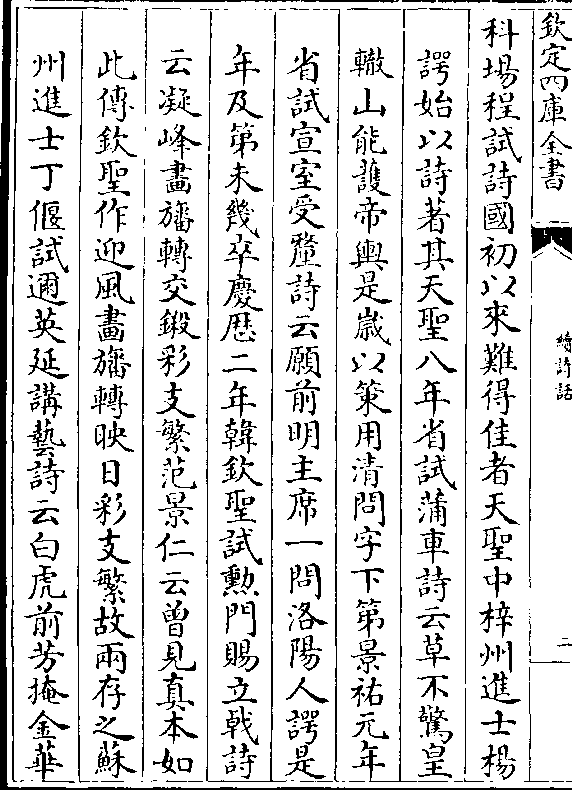 欽定四庫全書
續詩話
二
科場程試詩國初以來難得佳者天聖中梓州進士楊
諤始以詩著其天聖八年省試蒲車詩云草不驚皇
轍山能護帝輿是嵗以策用清問字下第景祐元年
省試宣室受釐詩云願前明主席一問洛陽人諤是
年及第未幾卒慶厯二年韓欽聖試勲門賜立㦸詩
云凝峰畫旛轉交鍛彩支繁范景仁云曽見真本如
此傳欽聖作迎風畫旛轉映日彩支繁故兩存之蘇
州進士丁偃試邇英延講藝詩云白虎前芳掩金華